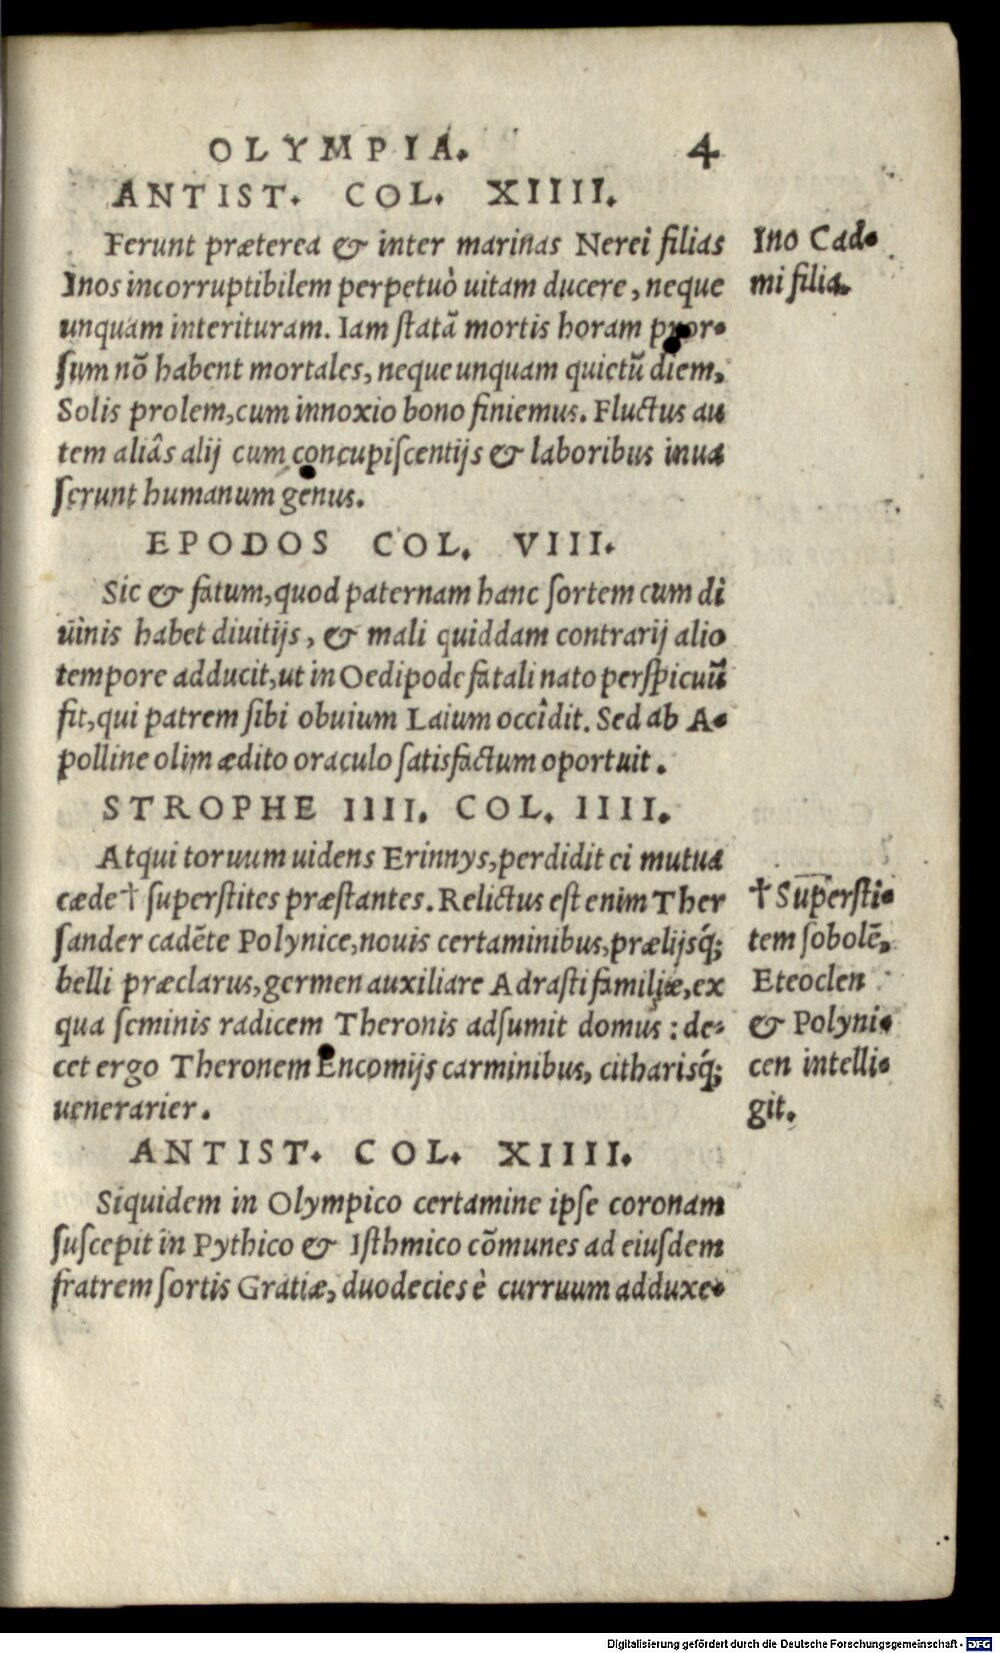 OLYMPIA. 4
ANTIST. COL. XIIII.
Ferunt præterea & inter marinas Nerei filias
Inos incorruptibilem perpetuò uitam ducere, neque
unquam interituram. Iam statã mortis horam pror-
sum nõ habent mortales, neque unquam quietũ diem,
Solis prolem, cum innoxio bono finiemus. Fluctus au
tem aliâs alij cum concupiscentijs & laboribus inua
serunt humanum genus.
Ino Cad-
mi filia.
EPODOS COL. VIII.
Sic & fatum, quod paternam hanc sortem cum di
uinis habet diuitijs, & mali quiddam contrarij alio
tempore adducit, ut in Oedipode fatali nato perspicuũ
fit, qui patrem sibi obuium Laium occidit. Sed ab A-
polline olim ædito oraculo satisfactum oportuit.
STROPHE IIII. COL. IIII.
Atqui toruum uidens Erinnys, perdidit ei mutua
cæde † superstites præstantes. Relictus est enim Ther
sander cadẽte Polynice, nouis certaminibus, prælijsq́;
belli præclarus, germen auxiliare Adrasti familiæ, ex
qua seminis radicem Theronis adsumit domus: de-
cet ergo Theronem Encomijs carminibus, citharisq́;
uenerarier.
† Supersti-
tem sobolẽ,
Eteoclen
& Polyni-
cen intelli-
git.
ANTIST. COL. XIIII.
Siquidem in Olympico certamine ipse coronam
suscepit in Pythico & Isthmico cõmunes ad eiusdem
fratrem sortis Gratiæ, duodecies è curruum adduxe-
Digitalisierung gefördert durch die Deutsche Forschungsgemeinschaft - DFG